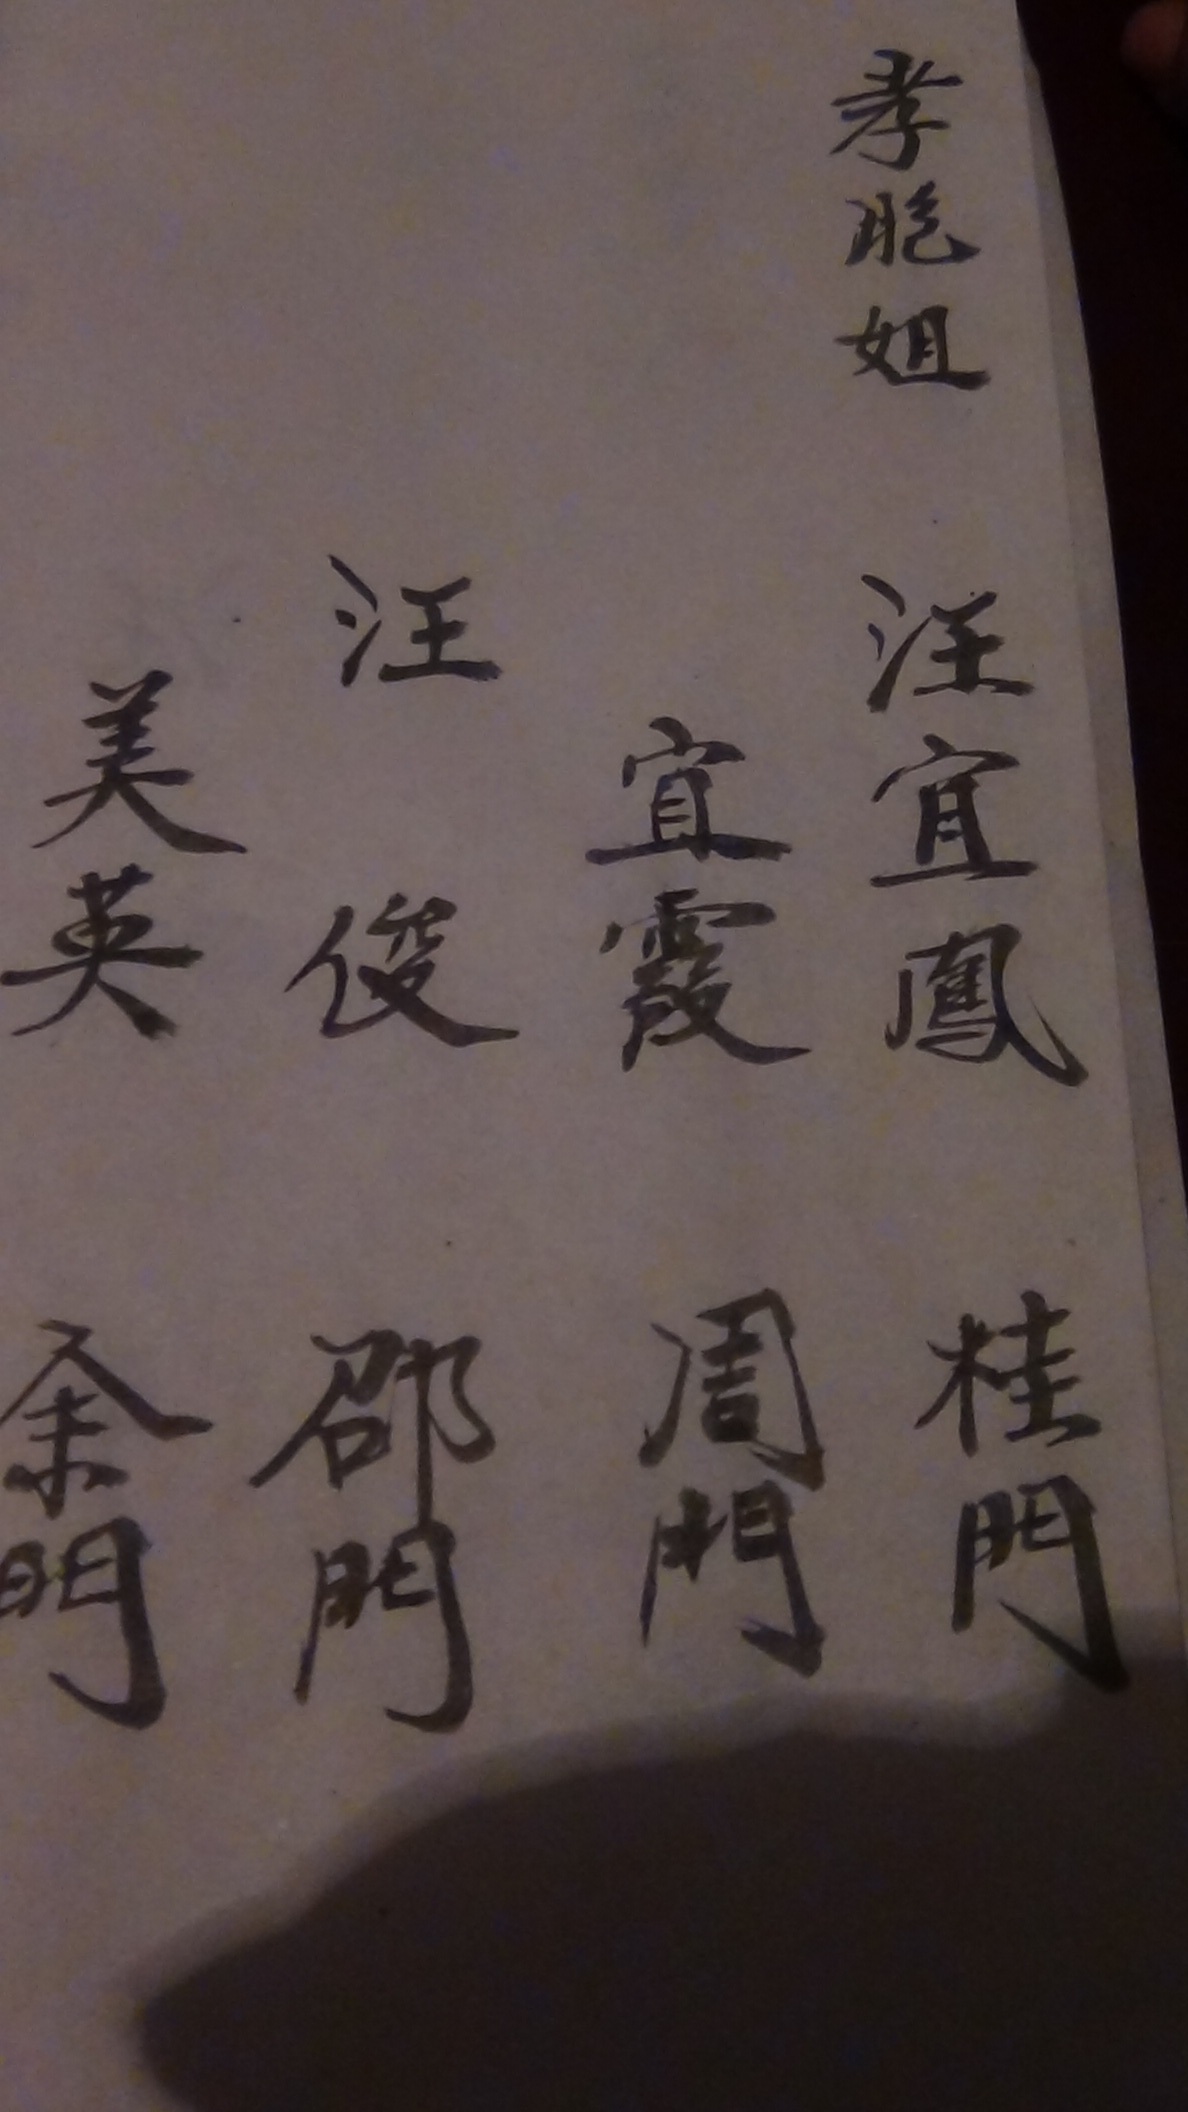 孝胞姐 汪宜鳳 桂門
宜霞 周門
汪俊 邵門
美英 余門